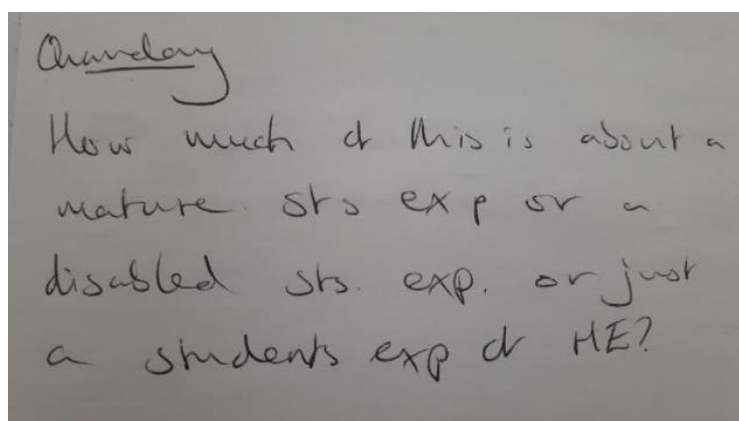 Quandary
How much of this is about a
mature sts exp or a
disabled sts. exp. or just
a students exp of HE?